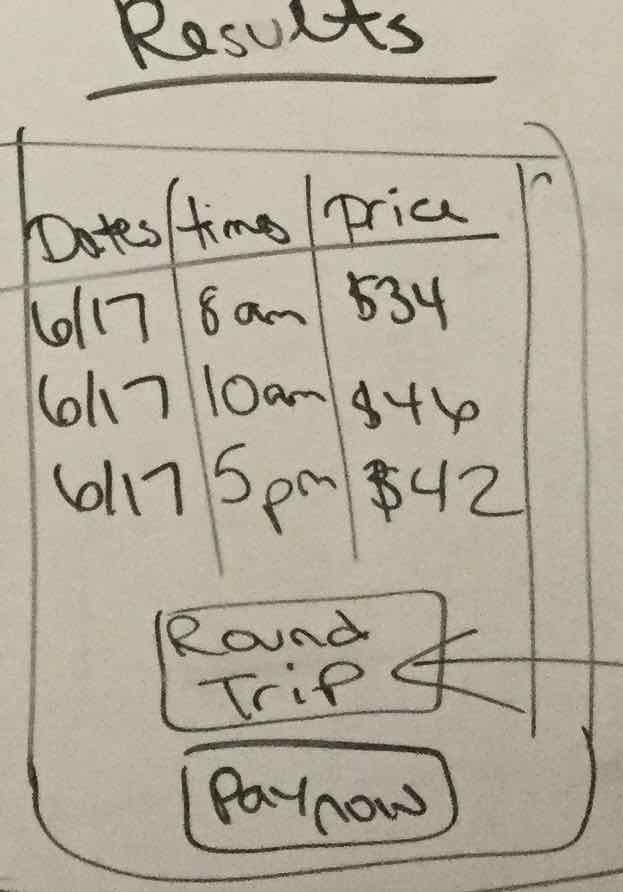 Results
Dates times price
6/17 8am $34
6/17 10am $46
6/17 5pm $42
Round
Trip
Pay now